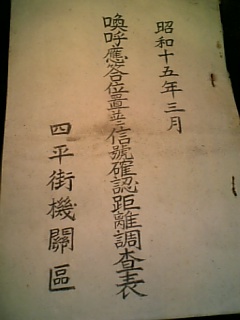 昭和十五年三月
喚呼應答位置並ニ信號確認距離調査表
四平街機關區